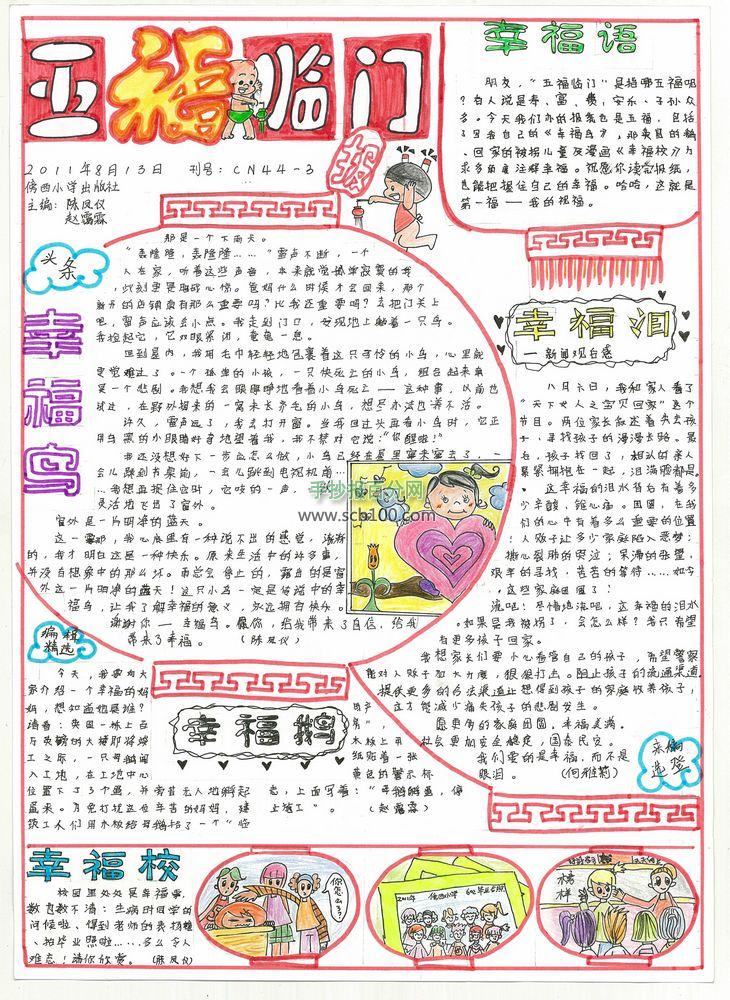 五福临门
报
2011年8月13日 刊号:CN44-3
佛西小学出版社
主编:陈凤仪
赵露霖
幸福语
朋友,“五福临门”是指哪五福呢
?有人说是寿、富、贵、安乐、子孙众
多。今天我们办的报竟也是五福,包括
了写我自己的《幸福鸟》,
、回家的被拐儿童及漫画《幸福校》分为
求多角度诠释幸福。祝愿你读完报纸,
也能把握住自己的幸福。哈哈,这就是
第一福——我的祝福。
头条
幸福鸟
那是一个下雨天。
“轰隆隆,轰隆隆……”雷声不断,一个
人在家,听着这些声音,本来就觉孤单寂寞的我
,此刻里是胆战心惊。爸妈什么时候才会回来,那个
新开的店铺真有那么重要吗?比我还重要吗?去把门关上
吧,雷声应该会小点。我走到门口,发现地上躺着一只鸟。
我捡起它,它双眼紧闭,奄奄一息。
回到屋内,我用毛巾轻轻地包裹着这只可怜的小鸟,心里就
更觉难过了。一个孤单的小孩,一只快死了的小鸟,组合起来真
是一个悲剧。我想我会眼睁睁地看着小鸟死去——这种事,以前也
试过,在野外捡来的一窝未长齐毛的小鸟,想尽办法也养不活。
许久,雷声远了,我去打开窗。当我回过头再看小鸟时,它正
用乌黑的小眼睛好奇地望着我,我不禁对它说:“你醒啦!”
我还没想好下一步应怎么做,小鸟已经在屋里窜来窜去了,一
会儿跳到书桌前,一会儿跳到电视机前……
……我想再捉住它时,它吱的一声,
灵活地飞出了窗外。
窗外是一片明净的蓝天。
这一霎那,我心底里有一种说不出的感觉,
的,我才明白这是一种快乐。原来生活中的许多事,
并没有想象中的那么坏。雨总会停止的,露出的是窗
外这一片明净的蓝天!这只小鸟一定是传说中的幸
福鸟,让我了解幸福的意义,永远拥有快乐。
谢谢你——幸福鸟。愿你,给我带来了自信,给我
带来了幸福。 (陈凤仪)
手抄报百分网
www.scb100.com
幸福泪
——新闻观后感
八月六日,我和家人看了
“天下女人之宝贝回家”这个
节目。两位家长叙述着失去孩
子、寻找孩子的漫漫长路。最
后,孩子找回了,相认的亲人
紧紧拥抱在一起,泪满脸都是。
这幸福的泪水背后有着多
少辛酸,锥心痛。团圆,在我
们的心中有着多么重要的位置
!人贩子让多少家庭陷入恶梦:
撕心裂肺的哭泣;呆滞的张望,
艰辛的寻找,苦苦的等待……如今
,这些家庭团圆了!
流吧!尽情地流吧,这幸福的泪水
。如果是我被拐了,会怎么样?我只希望
有更多孩子回家。
我想家长们要小心看管自己的孩子,希望警察
能对人贩子加大力度,狠狠打击。阻止孩子的流通渠道
,提供更多的合法渠道让想得到孩子的家庭收养孩子,
这才能减少痛失孩子的悲剧发生。
愿更多的家庭团圆,幸福美满。
社会更加安全稳定,国泰民安。
我们要的是幸福,而不是
眼泪。 (何雅莉)
编辑
精选
幸福鹅
今天,我要向大
家介绍一个幸福的妈
妈,想知道她是谁?
请看:英国一栋上百
万英镑的大楼即将竣
工之际,一只母鹅闯
入工地,在工地中心
位置下了3个蛋,并旁若无人地孵起
蛋来。为免打扰这位辛苦的妈妈,建
筑工人们用木板给母鹅搭了一个“临
时产
房”,
木板上用
纸贴着一张
黄色的警示标
志,上面写着:“母鹅孵蛋,停
止施工”。 (赵露霖)
亲情
选登
幸福校
校园里处处是幸福事,
数也数不清:生病时同学的
问候啦、得到老师的表扬啦
、拍毕业照啦……多么令人
难忘!请你欣赏。 (陈凤仪)
你怎么了?
2011年 佛西小学 6(2)毕业合照
榜样